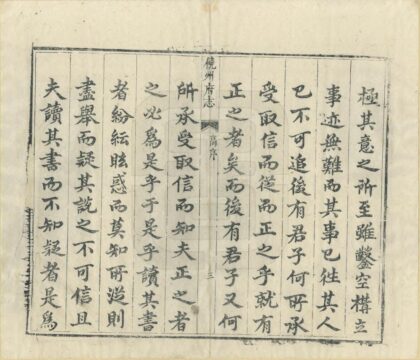 極其意之所至雖鑿空構立
事迹無難而其事已徃其人
已不可追後有君子何所承
受取信而從而正之乎就有
正之者矣而後有君子又何
饒州府志
高序
三
所承受取信而知夫正之者
之必為是乎于是乎讀其書
者紛紜眩惑而莫知所從則
盡舉而疑其說之不可信且
夫讀其書而不知疑者是為